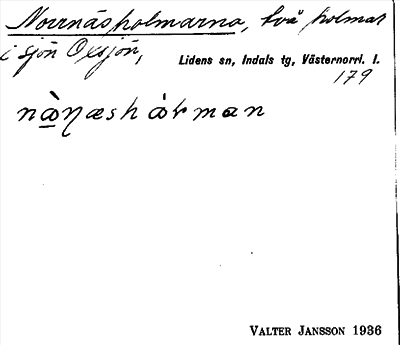 Norrnäsholmarna, två holmar
i sjön Oxsjön,
Lidens sn, Indals tg, Västernorrl. l.
179
nɷ̀ŋæshɷ́ɽman
VALTER JANSSON 1936